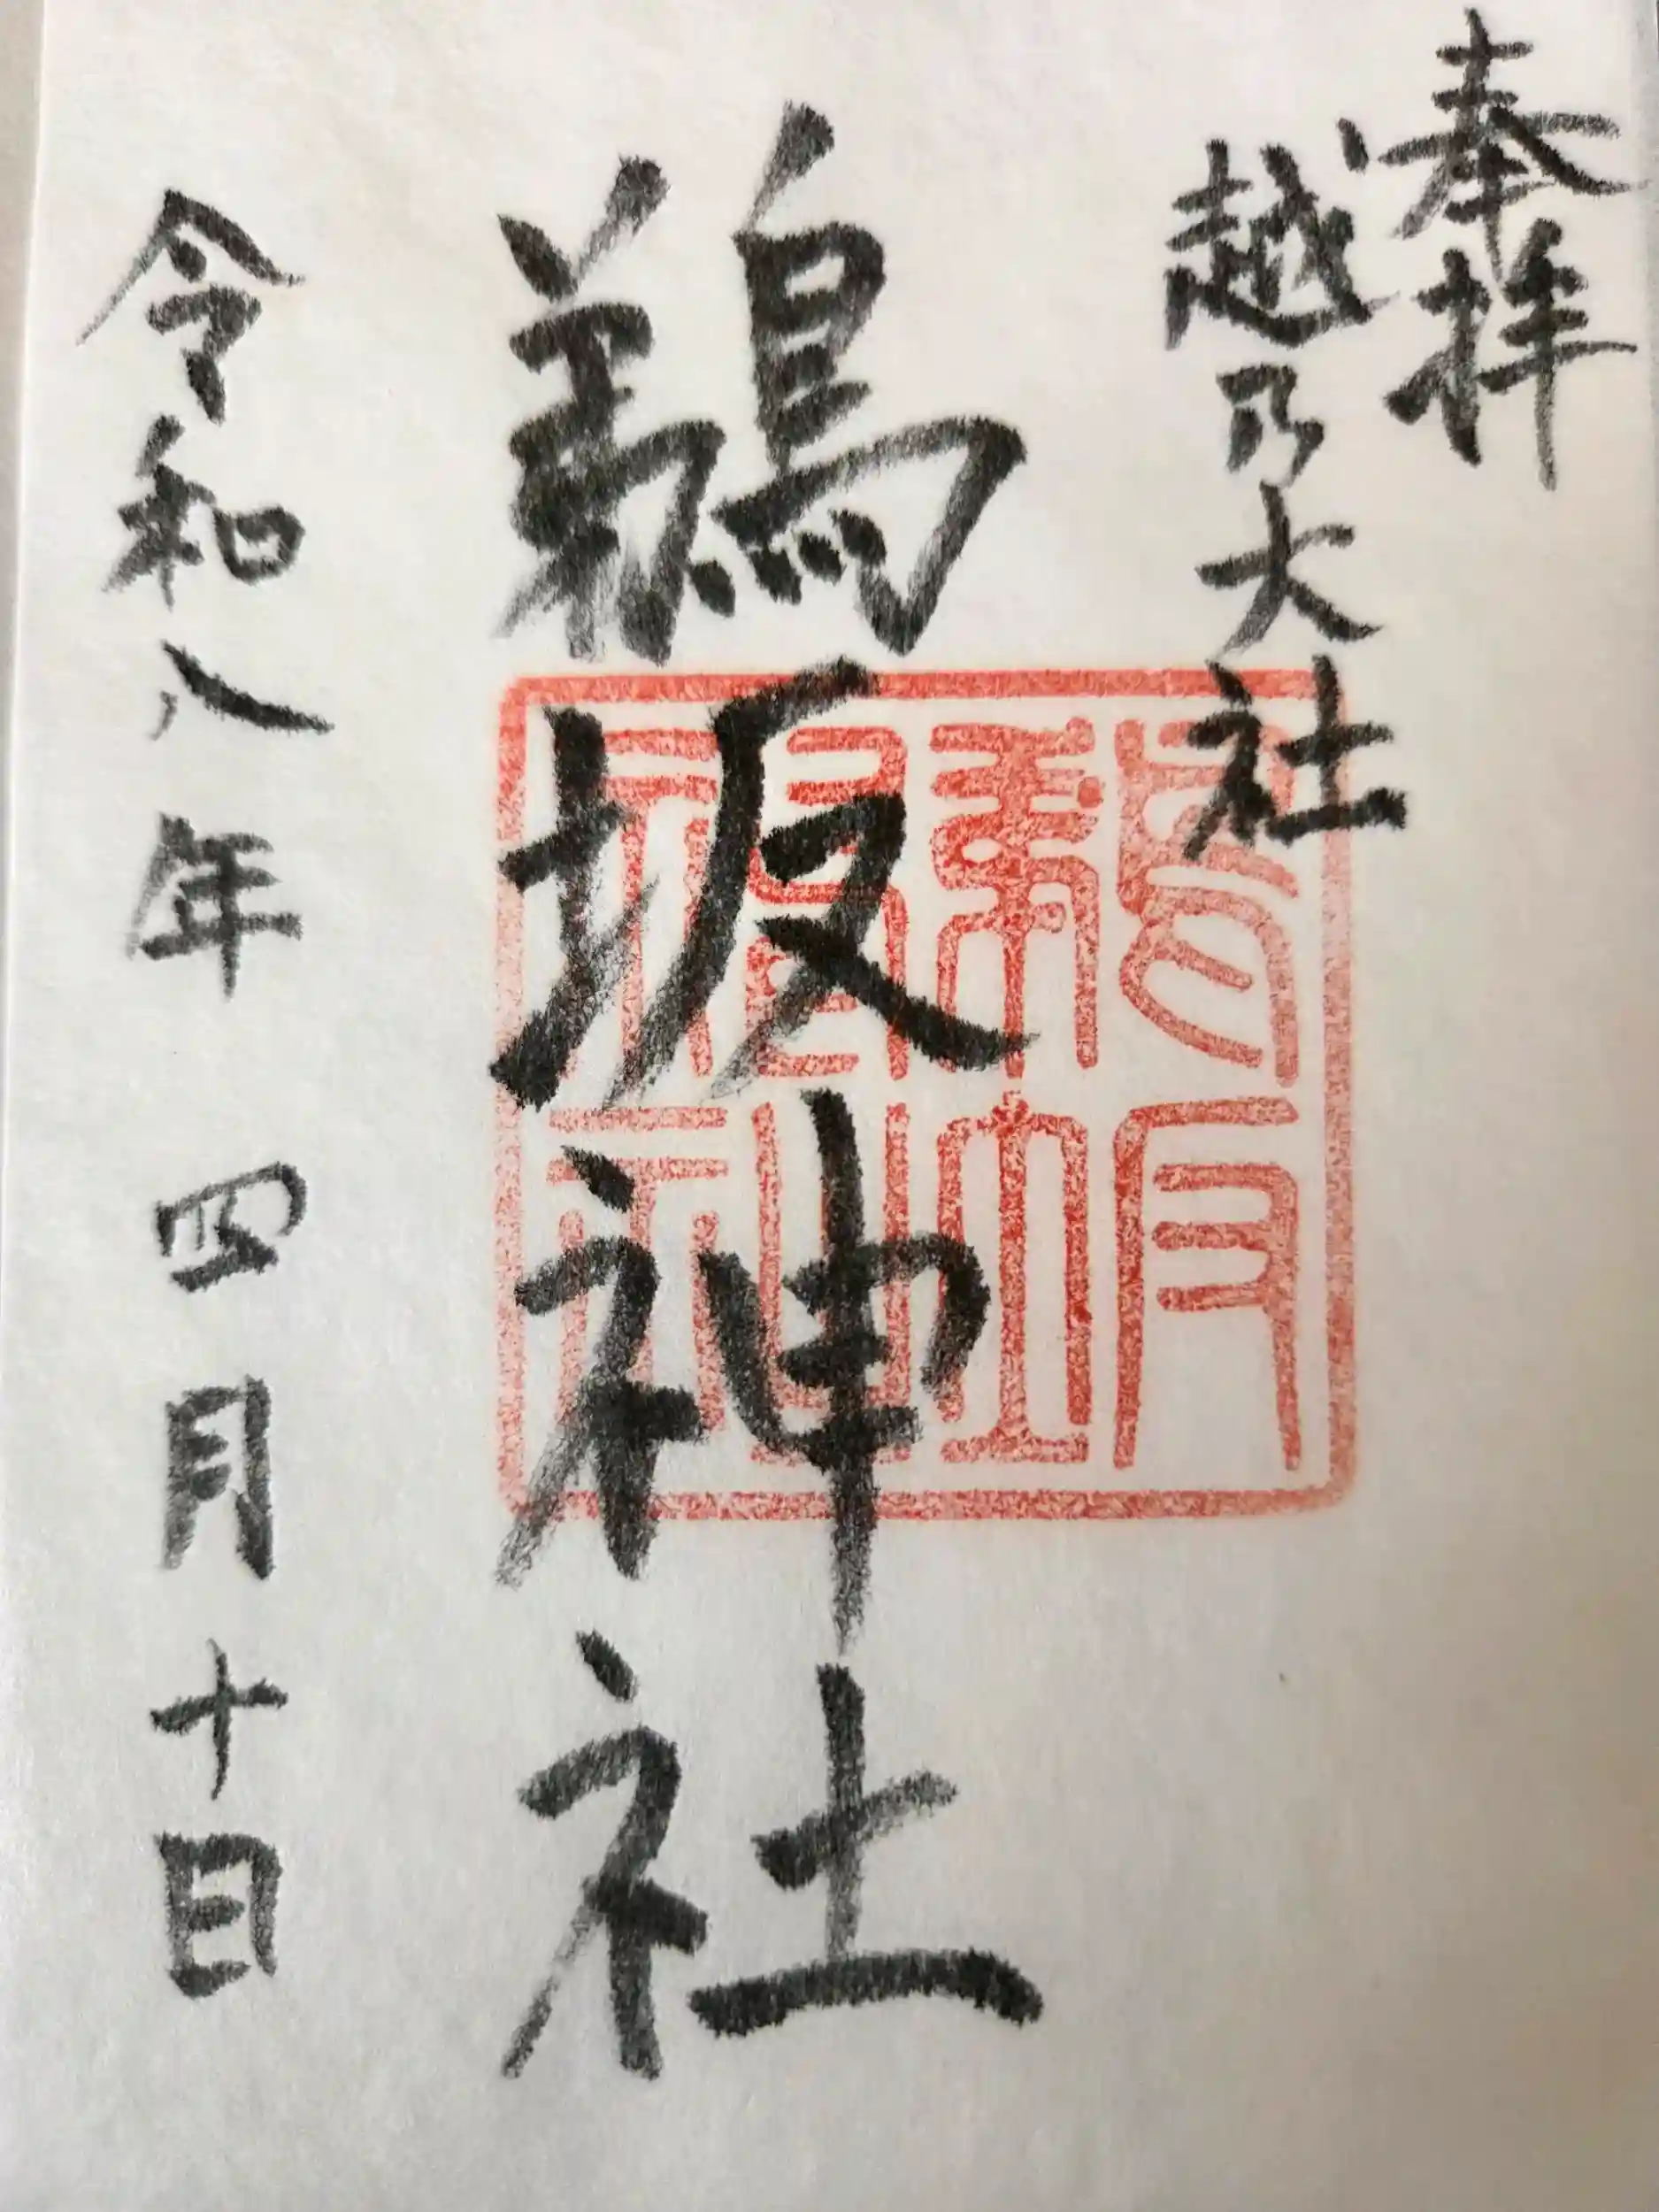 奉拝
越乃大社
鵜坂神社
鵜坂神社
令和八年 四月十日